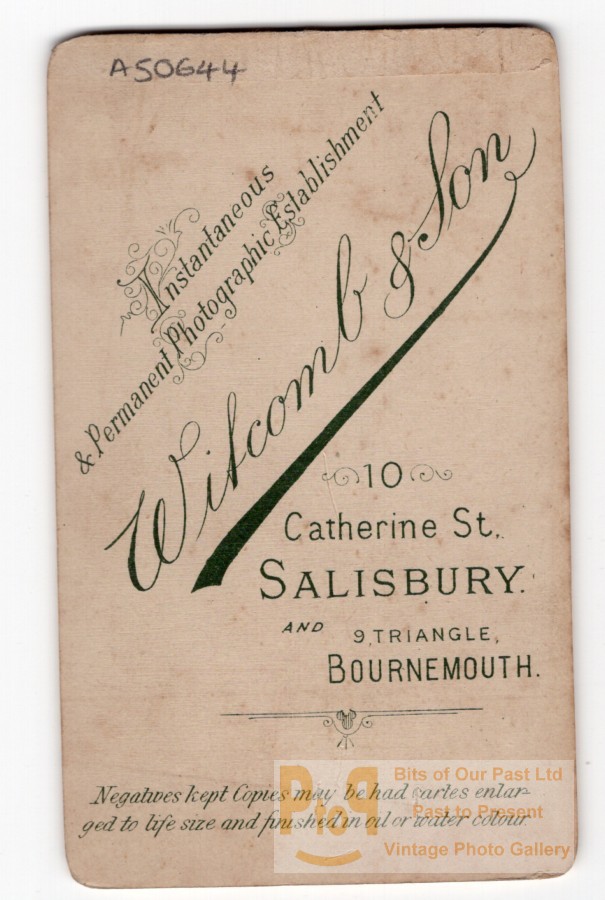 A50644
Instantaneous
& Permanent Photographic Establishment
Witcomb & Son
10
Catherine St,
SALISBURY.
AND 9, TRIANGLE,
BOURNEMOUTH.
Negatives kept Copies may be had cartes enlar-
ged to life size and finished in oil or water colour.
PtoP
Bits of Our Past Ltd
Past to Present
Vintage Photo Gallery